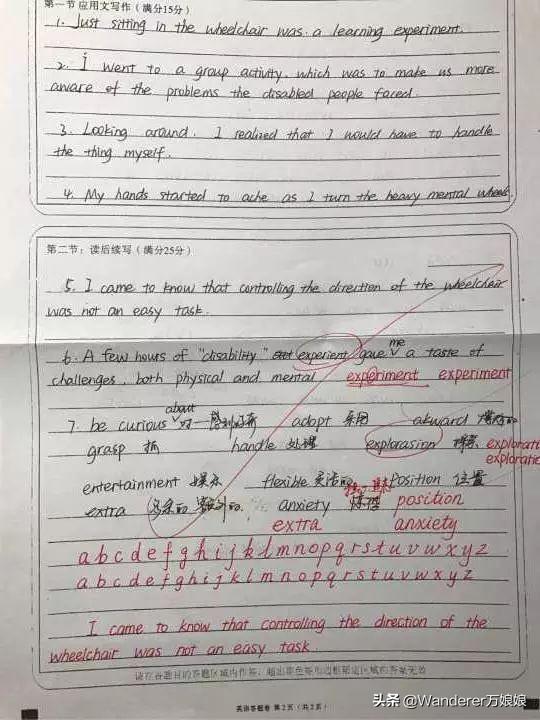 第一节 应用文写作 (满分15分)
1. Just sitting in the wheelchair was a learning experiment.
2. I went to a group activity, which was to make us more
aware of the problems the disabled people faced.
3. Looking around, I realized that I would have to handle
the thing myself.
4. My hands started to ache as I turn the heavy mental wheels.
第二节:读后续写 (满分25分)
5. I came to know that controlling the direction of the wheelchair
was not an easy task.
6. A few hours of "disability" experient gave me a taste of
challenges, both physical and mental experiment experiment
7. be curious about 对…感到好奇 adopt 采用 akward
grasp 抓 handle 处理 explorasion 探索
entertainment 娱乐 flexible 灵活的 position 位置
extra 额外的 anxiety position
extra anxiety
a b c d e f g h i j k l m n o p q r s t u v w x y z
a b c d e f g h i j k l m n o p q r s t u v w x y z
I came to know that controlling the direction of the
wheelchair was not an easy task.
请在各题目的答题区域内作答,超出黑色矩形边框限定区域的答案无效
英语答题卷 第2页 (共2页)
头条 @Wanderer万娘娘